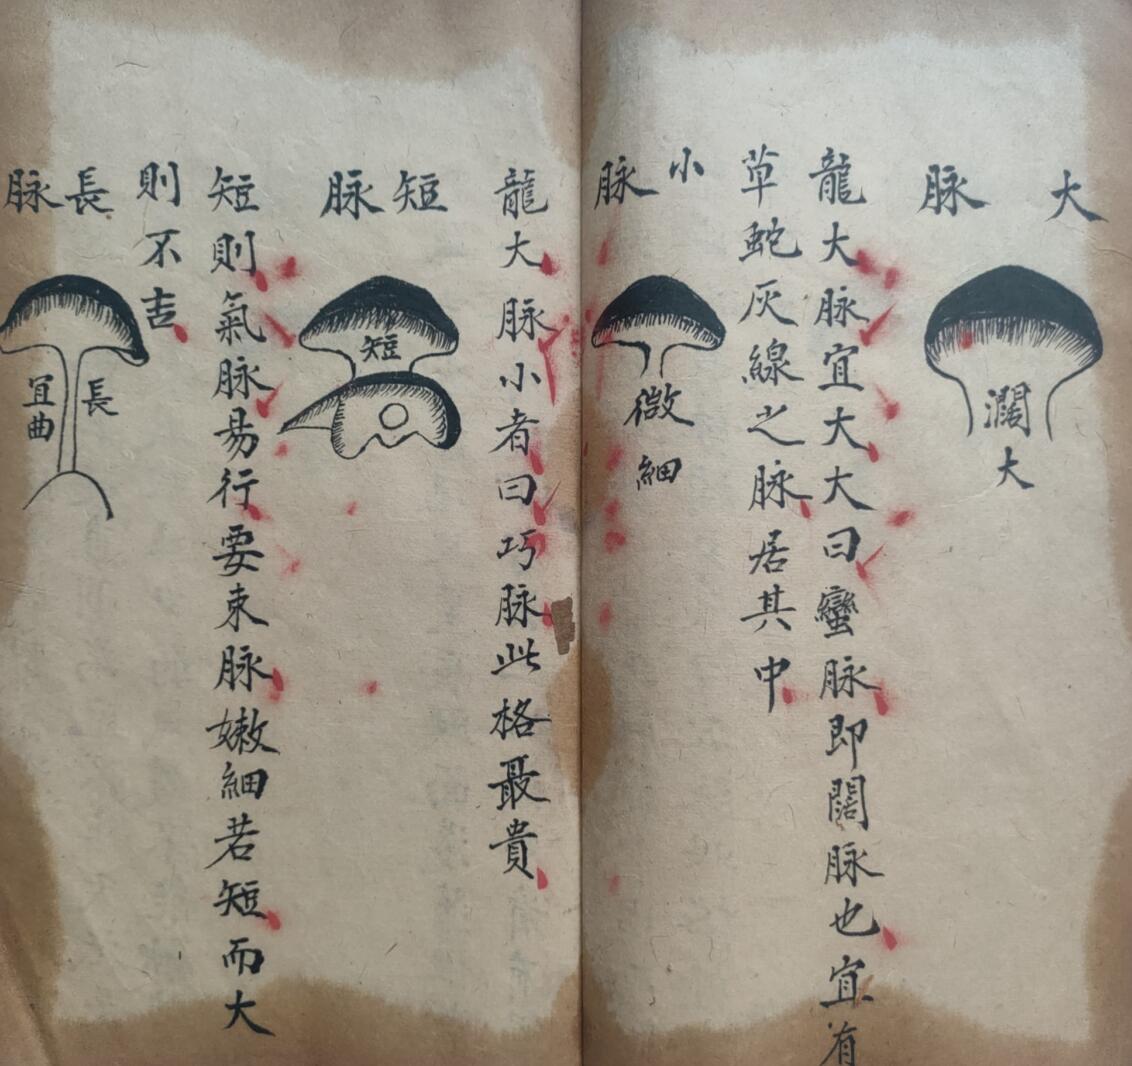 大脉
濶大
龍大脉宜大大曰蠻脉即闊脉也宜有
草蛇灰線之脉居其中
小脉
微細
龍大脉小者曰巧脉此格最貴
短脉
短
短則氣脉易行要束脉嫩細若短而大
則不吉
長脉
長
宜曲